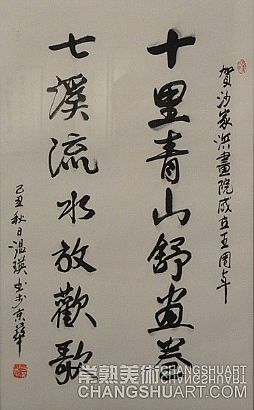 贺沙家浜畫院成立五周年
十里青山舒畫卷
七溪流水放歡歌
己丑秋日温瑛书于京華
常熟美術 CHANGSHUART
CHANGSHUART.COM